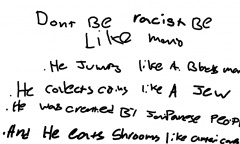 Dont Be racist Be
Like mario
. He Jumps like A Black man
. He collects coins like A Jew
. He was created BY Japanese People
. And He eats Shrooms like